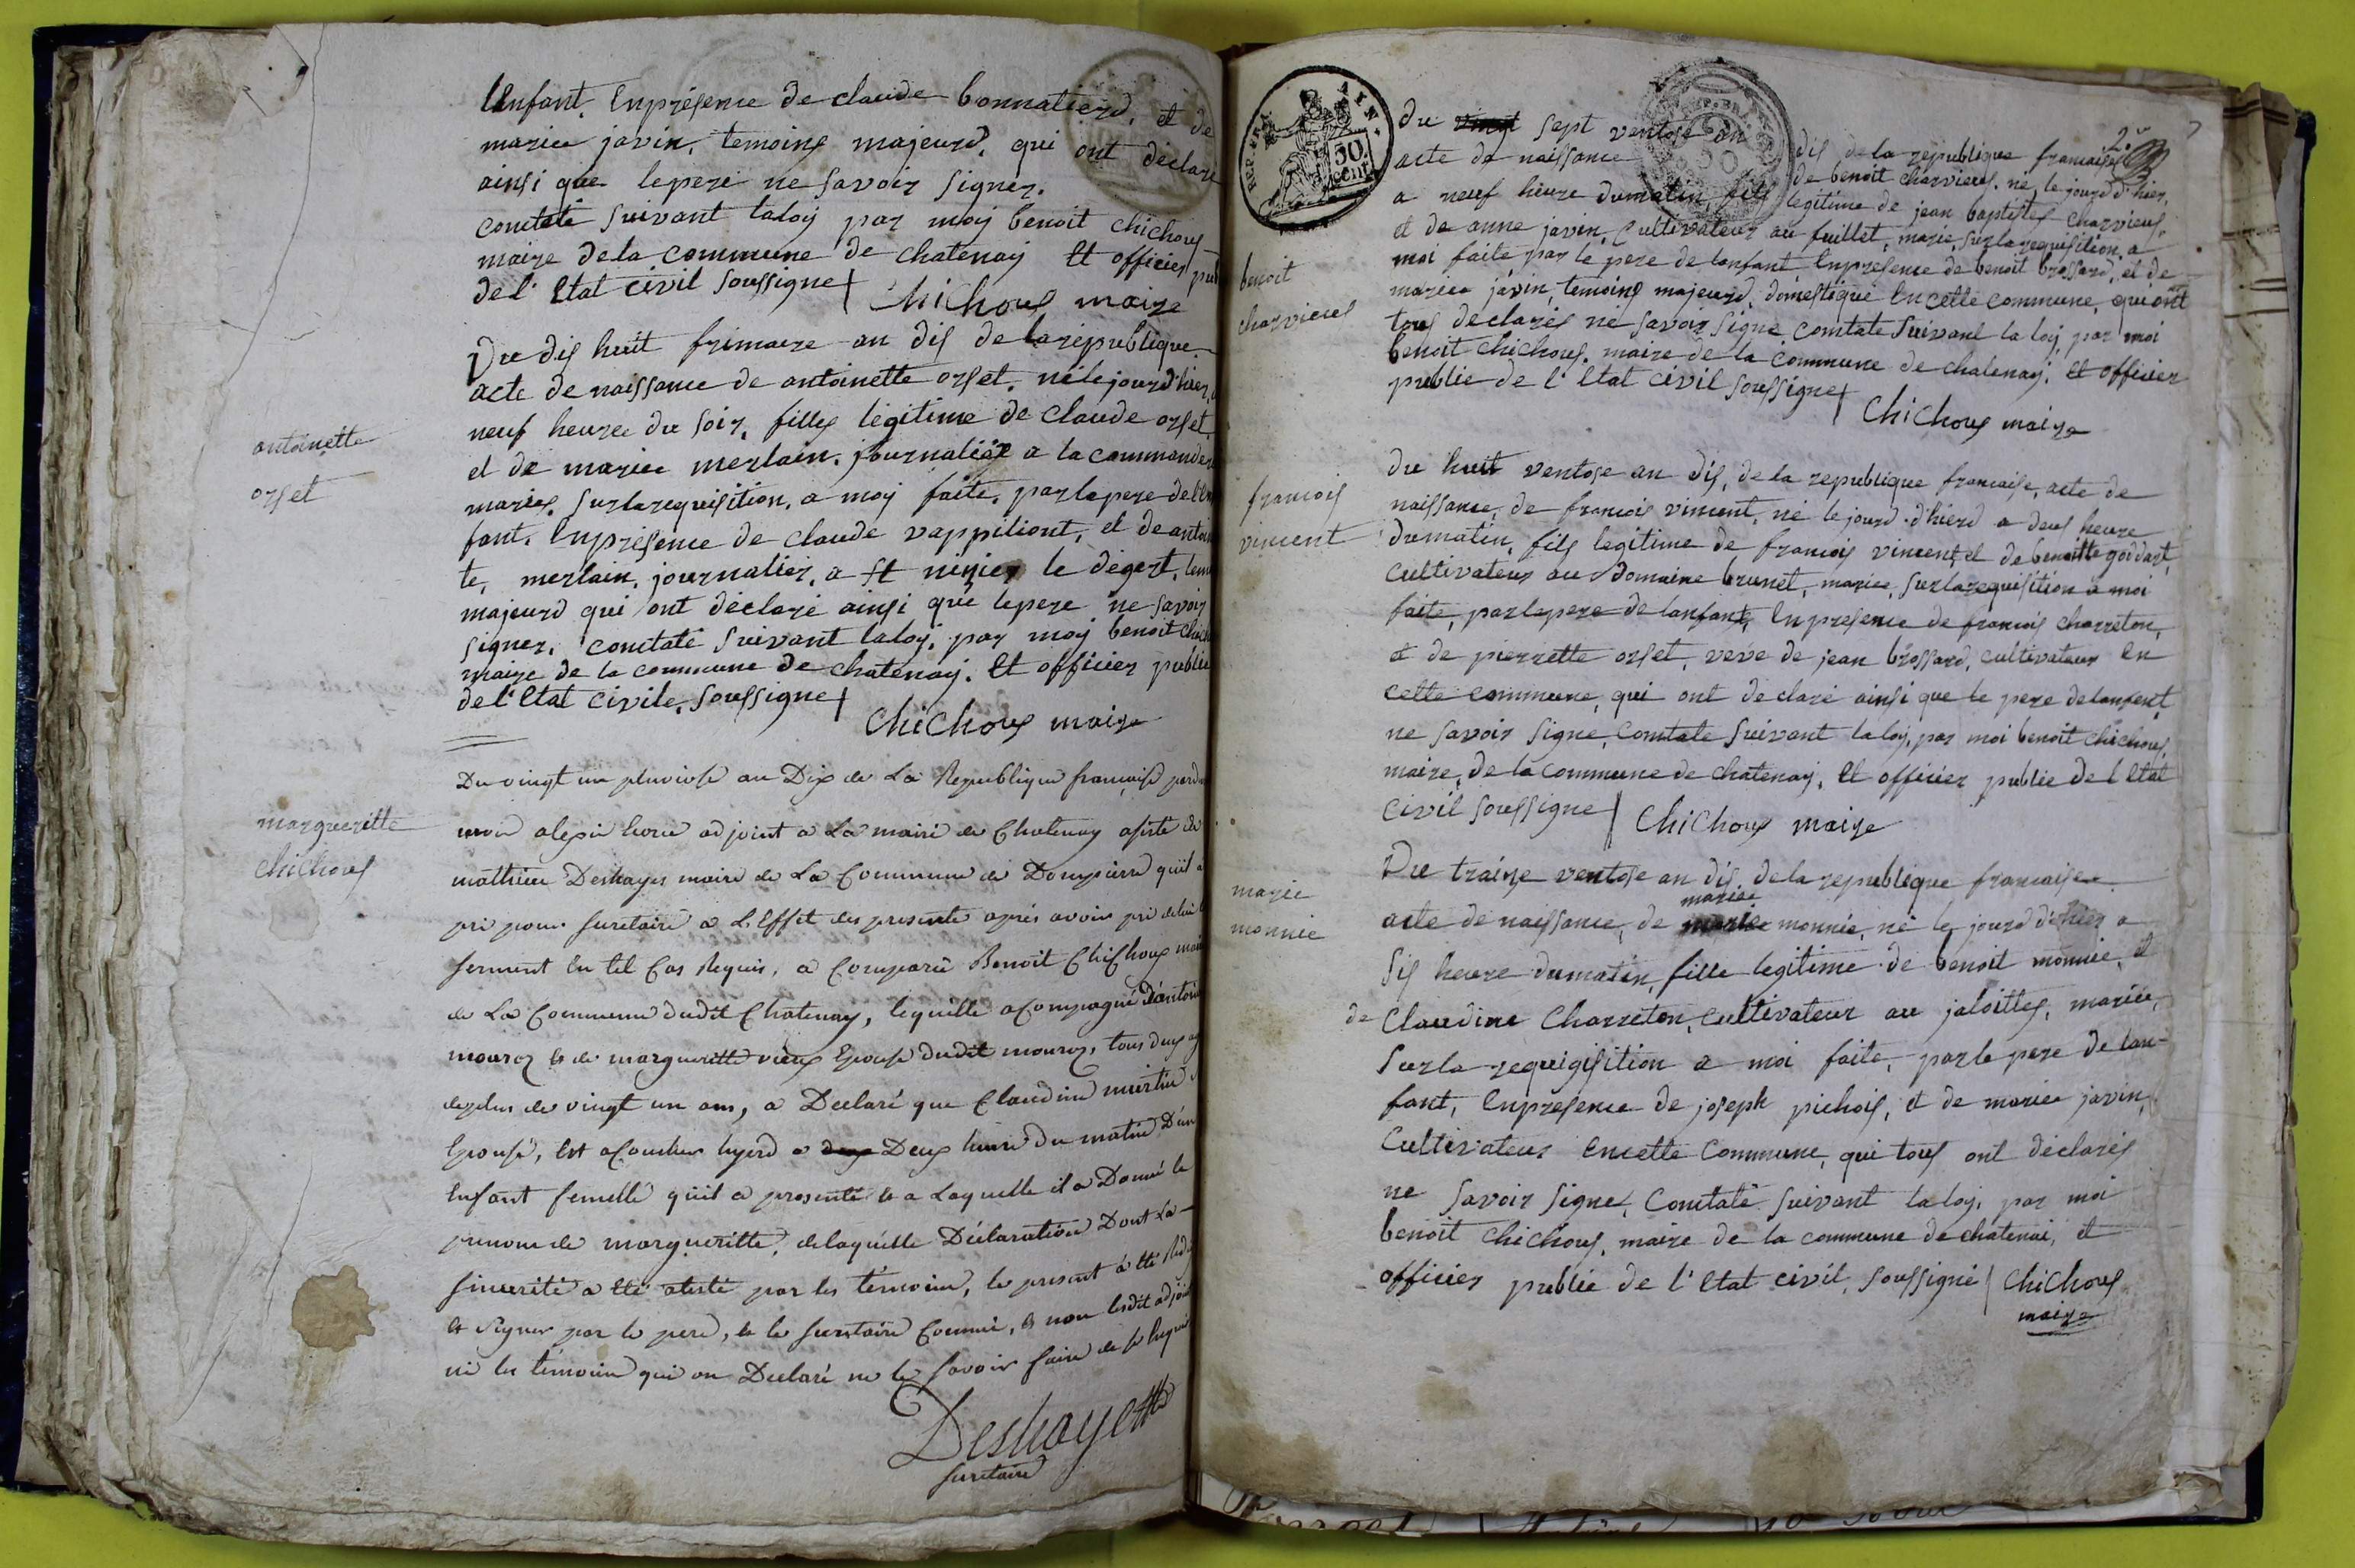 lEnfant. Enpresence de claude bonnatierd, et de
mariee javin, temoins majeurd, qui ont declare
ainsi que lepere ne savoir signer.
constaté suivant laloy par moy benoit chichoux
maire dela commune de chatenay Et officier pub
de l'Etat civil soussigne
Chichoux maire
antoinette
orset
Du dix huit frimaire an dix de la republique
acte de naissance de antoinette orset. né le jourd'hier, a
neuf heuree du soir, filles légitime de claude orset,
et de mariee merlain. journalier a la commander
mariés. sur la requisition, a moy faite, par le pere de len
fant. Enpresence de claude vappiliont, et de antoi
te, merlain, journalier, a st nizier le dégert, tem
majeurd qui ont déclaré ainsi que lepere ne savoir
signer, constaté suivant laloy, par moy benoit chich
maire de la commune de chatenay. Et officier public
de l'Etat civile, soussigne
Chichoux maire
margueritte
chichoux
Du vingt un pluviose an Dix de La Republique française pard
adjoint a La mairi de Chatenay asisté de
mathieu Deshayes maire de La Commune de Dompierre quil a
pri pour secretaire a L'Effet des presente après avoir pri de lui le
serment En tel Cas Requis, a Comparu Benoit Chichoux mair
de La Commune dudit Chatenay, lequelle acompagné d'antoin
mouroz & de margueritte vieux Epouse dudit mouroz, tous deux ag
deplus de vingt un ans, a Declaré que Claudine murtin
Epouse, Est acouchée hyerd a Deux heure du matin D'un
Enfant femelle quil a presenté & a Laquelle il a Donné le
prenom de margueritte, delaquelle Déclaration Dont La
sincerité a Eté atesté par les témoins, le present a été Redi
& signer par le pere, & le secretaire Commis, & non ledit adjoin
ni les témoins qui on Declaré ne le savoir faire de se Requis
Deshayes
secretaire
REP. FRA.
50
cent.
2e
7
benoit
charvieux
du sept ventose an dix de la republique francaise
acte de naissance de benoit charvieux. né le jourd'hier,
a neuf heure dumatin, fils legitime de jean baptistes charvieux,
et de anne javin, cultivateur au fuillet, marie, sur la requisition a
moi faite par le pere de lanfant Enpresence de benoit brossard, et de
mariee javin, temoins majeurd, domestique Encette commune, qui ont
tous declarés né savoir signe, constate suivant la loy par moi
benoit chichoux. maire de la commune de chatenay. Et officier
publie de l'Etat civil soussigne
Chichoux maire
francois
vincent
du huit ventose an dix, de la republique francaise, acte de
naissance, de francois vincent, né le jourd'hierd a deux heure
dumatin, fils legitime de francois vincent, et de benoitte goddart,
cultivateur au domaine brunet, mariee, sur la requisition a moi
faite, par le pere de lanfant, Enpresence de francois charreton,
et de pierrette orset, veve de jean brossard, cultivateur En
cette commune, qui ont declaré ainsi que le pere delanfent,
ne savoir signe, constate suivant la loy, par moi benoit chichoux,
maire, de la commune de chatenay, Et officier publie de l Etat
civil soussigne Chichoux maire
marie
monnie
Du traize ventose an dix de la republique francaise
mariee
acte de naissance, de monnie, né le jourd d'hier a
six heure dumatin, fille legitime de benoit monnie, et
de Claudine Charreton, cultivateur au jaloittes, mariée,
sur la requigisition a moi faite, par le pere de lan-
fant, Enpresence de joseph pichois, et de mariee javin,
Cultivateur Encette commune, qui tous ont déclarés
ne savoir signe, constaté suivant la loy, par moi
benoit chichoux, maire de la commune de chatenai, et
officier publie de l'Etat civil, soussigné Chichoux
maire